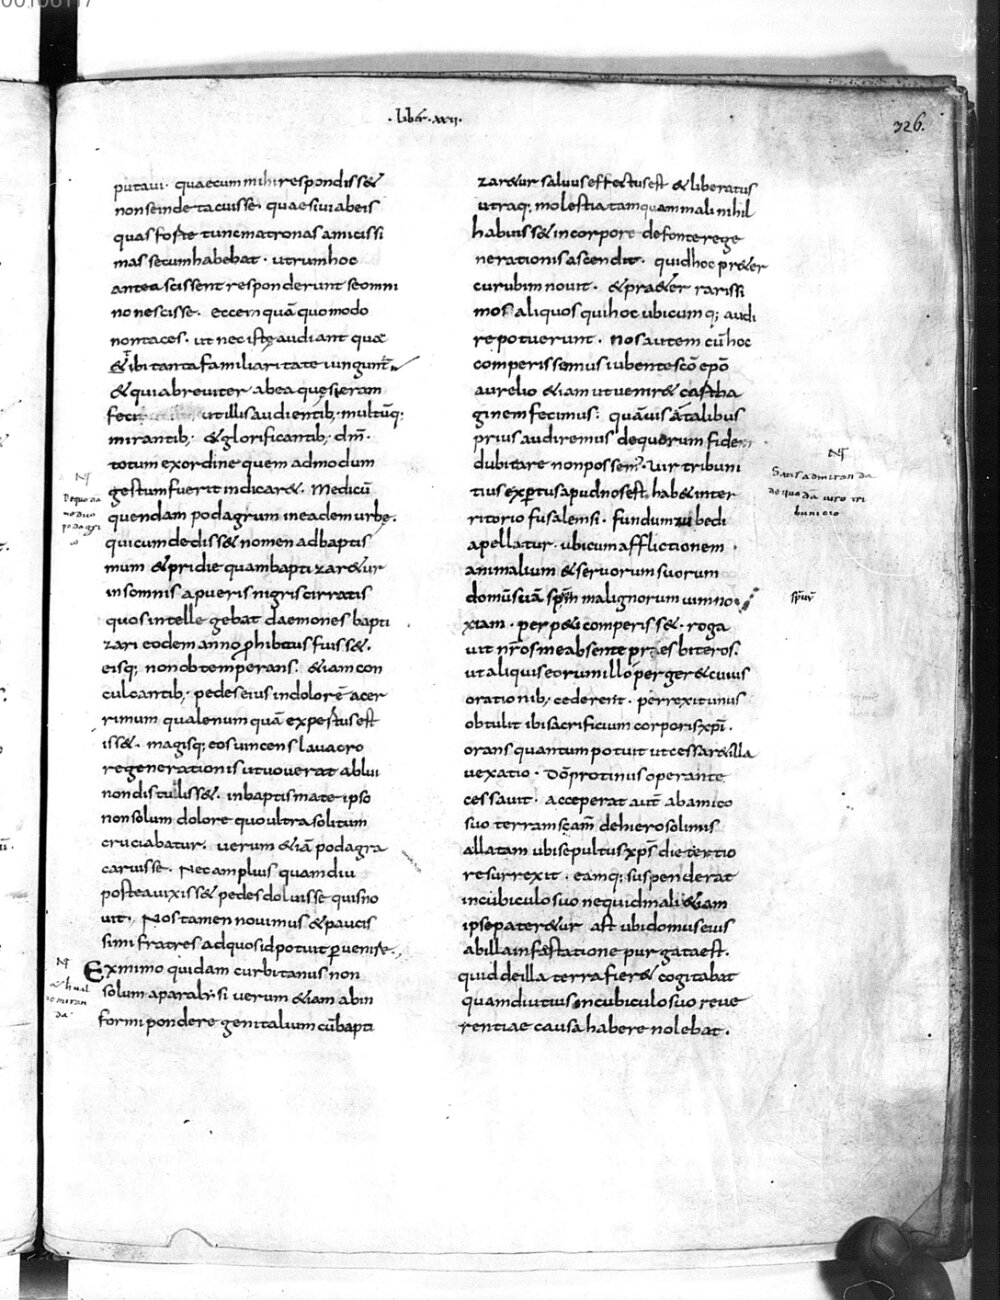 00106117
· liber · xxii ·
326.
putaui · quaecum mihi respondiss&
non se inde tacuisse · quaesiui ab eis
quas forte tunc matronas amicissi
mas secum habebat · utrum hoc
antea scissent responderunt se omni
no nescisse · ecce inquā quomodo
non taces · ut nec istę audiant quae
& ibi tanta familiaritate iungunt̄
& quia breuiter ab ea quęsieram
feci ut illis audientib; multūq;
mirantib; & glorificantib; dm̄ ·
totum ex ordine quem admodum
gestum fuerit indicar& · Medicū
quendam podagrum in eadem urbe ·
qui cum dediss& nomen ad baptis
mum & pridie quam baptizar&ur
in somnis a pueris nigris cirratis
quos intellegebat daemones bapti
zari eodem anno ꝓhibitus fuiss& ·
eisq; non obtemperans · &iam con
culcantib; pedes eius in dolorē acer
rimum qualem umquā expertus est
iss& · magisq; eos uincens lauacro
regenerationis ut uouerat ablui
non distuliss& · in baptismate ipso
non solum dolore quo ultra solitum
cruciabatur · uerum &iā podagra
caruisse · Nec amplius quam diu
postea uixiss& pedes doluisse quis no
uit · Nos tamen nouimus & paucis
simi fratres ad quos id potuit ꝑuenire ·
Ex mimo quidam curbitanus non
solum a paralysi uerum &iam ab in
formi pondere genitalium cū bapti
zar&ur saluus effectus est & liberatus
utraq; molestia tamquam mali nihil
habuiss& in corpore de fonte rege
nerationis ascendit · quid hoc pr&er
curubim nouit · & pra&er rarissi
mos aliquos qui hoc ubicumq; audi
re potuerunt · Nos autem cū hoc
comperissemus iubente scō epō
aurelio &iam ut uenir& cartha
ginem fecimus : quāuis a talibus
prius audiremus de quorum fide
dubitare non possem · Uir tribuni
tius expertus apud nos est · hab& in ter
ritorio fusalensi · fundum zubedi
apellatur · ubi cum afflictionem
animalium & seruorum suorum
domūsuā spm̄ malignorum uim no
xiam · perp&i comperiss& · roga
uit nr̄os me absente praesbiteros ·
ut aliquis eorum illo perger& cuius
orationib; cederent · perrexit unus
obtulit ibi sacrificium corporis xpī ·
orans quantum potuit ut cessar& illa
uexatio · Dō protinus operante
cessauit · acceperat aut̄ ab amico
suo terram scam̄ de hierosolimis
allatam ubi sepultus xps̄ die tertio
resurrexit · eamq; suspenderat
in cubiculo suo ne quid mali &iam
ipse pater&ur ast ubi domus eius
ab illa infęstatione purgata est ·
quid de illa terra fier& cogitabat
quam diutius in cubiculo suo reue
rentiae causa habere nolebat ·
De quodā
medico
podagri
co
Satis admiranda
de quodā uiro tri
bunicio